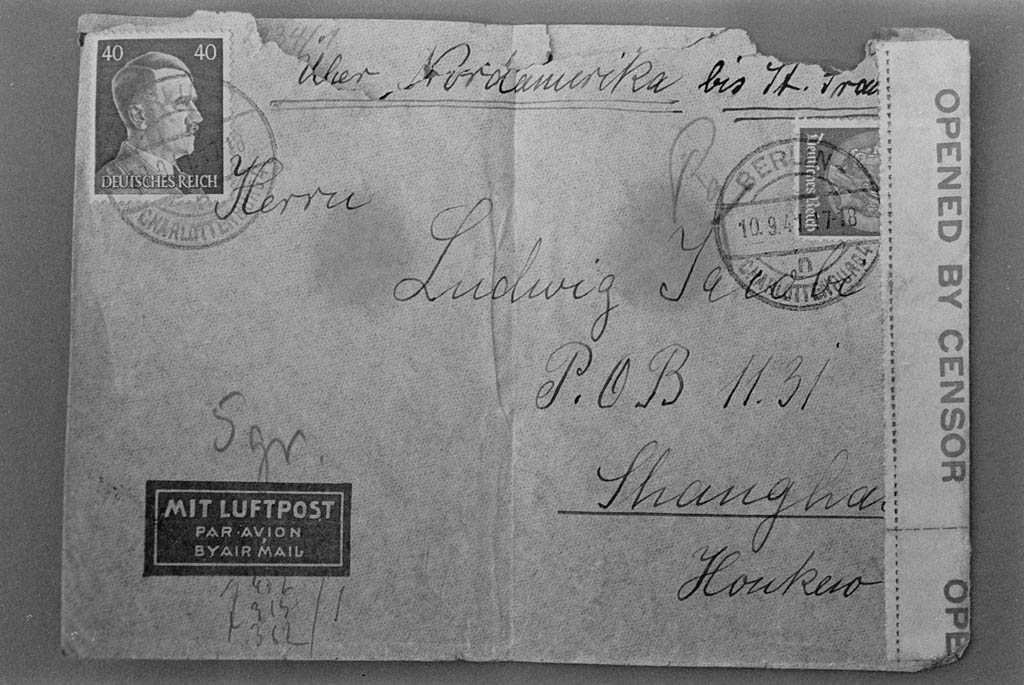 40 40
DEUTSCHES REICH
über Nordamerika bis St. Fran
Herrn
BERLIN
10.9.41 17-18
n
CHARLOTTENBURG 4
Deutsches Reich
CHARLOTTEN
Ludwig Jacobi
P.O.B 11.31
Shangha
Honkew
Sgr.
MIT LUFTPOST
PAR AVION
BY AIR MAIL
OPENED BY CENSOR
OPE